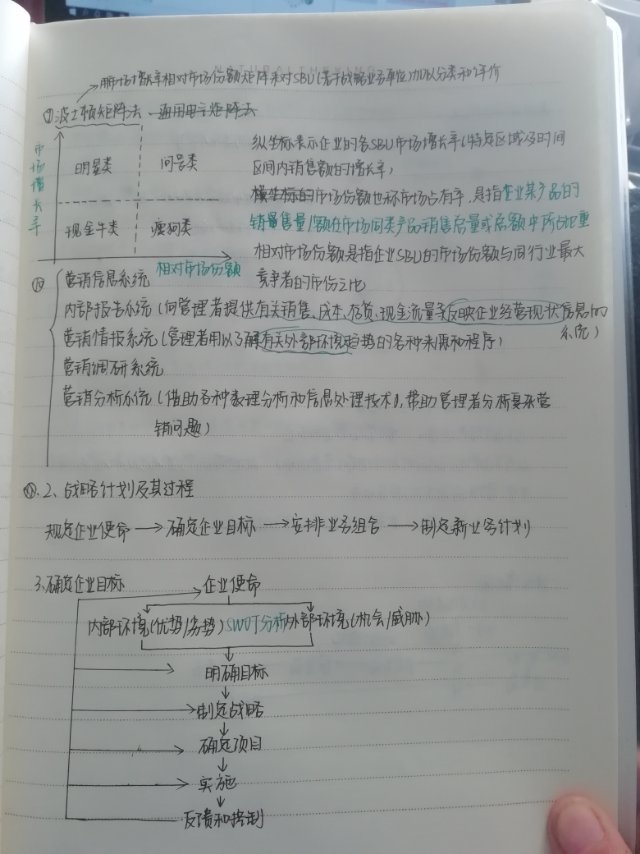 用市场增长率相对市场份额矩阵来对SBU(若干战略业务单位)加以分类和评价
①波士顿矩阵法 通用电气矩阵法
市场增长率
明星类 问号类
现金牛类 瘦狗类
相对市场份额
纵坐标表示企业的各SBU市场增长率(特定区域及时间
区间内销售额的增长率)
横坐标的市场份额也称市场占有率,是指企业某产品的
销售量/额在市场同类产品销售总量或总额中所占比重
相对市场份额是指企业SBU的市场份额与同行业最大
竞争者的市份之比
营销信息系统
内部报告系统(向管理者提供有关销售、成本、存货、现金流量等反映企业经营现状信息的
系统)
营销情报系统(管理者用以了解有关外部环境趋势的各种来源和程序)
营销调研系统
营销分析系统(借助各种数理分析和信息处理技术,帮助管理者分析复杂营
销问题)
2、战略计划及其过程
规定企业使命→确定企业目标→安排业务组合→制定新业务计划
3.确定企业目标
企业使命
内部环境(优势/劣势) SWOT分析 外部环境(机会/威胁)
明确目标
制定战略
确定项目
实施
反馈和控制